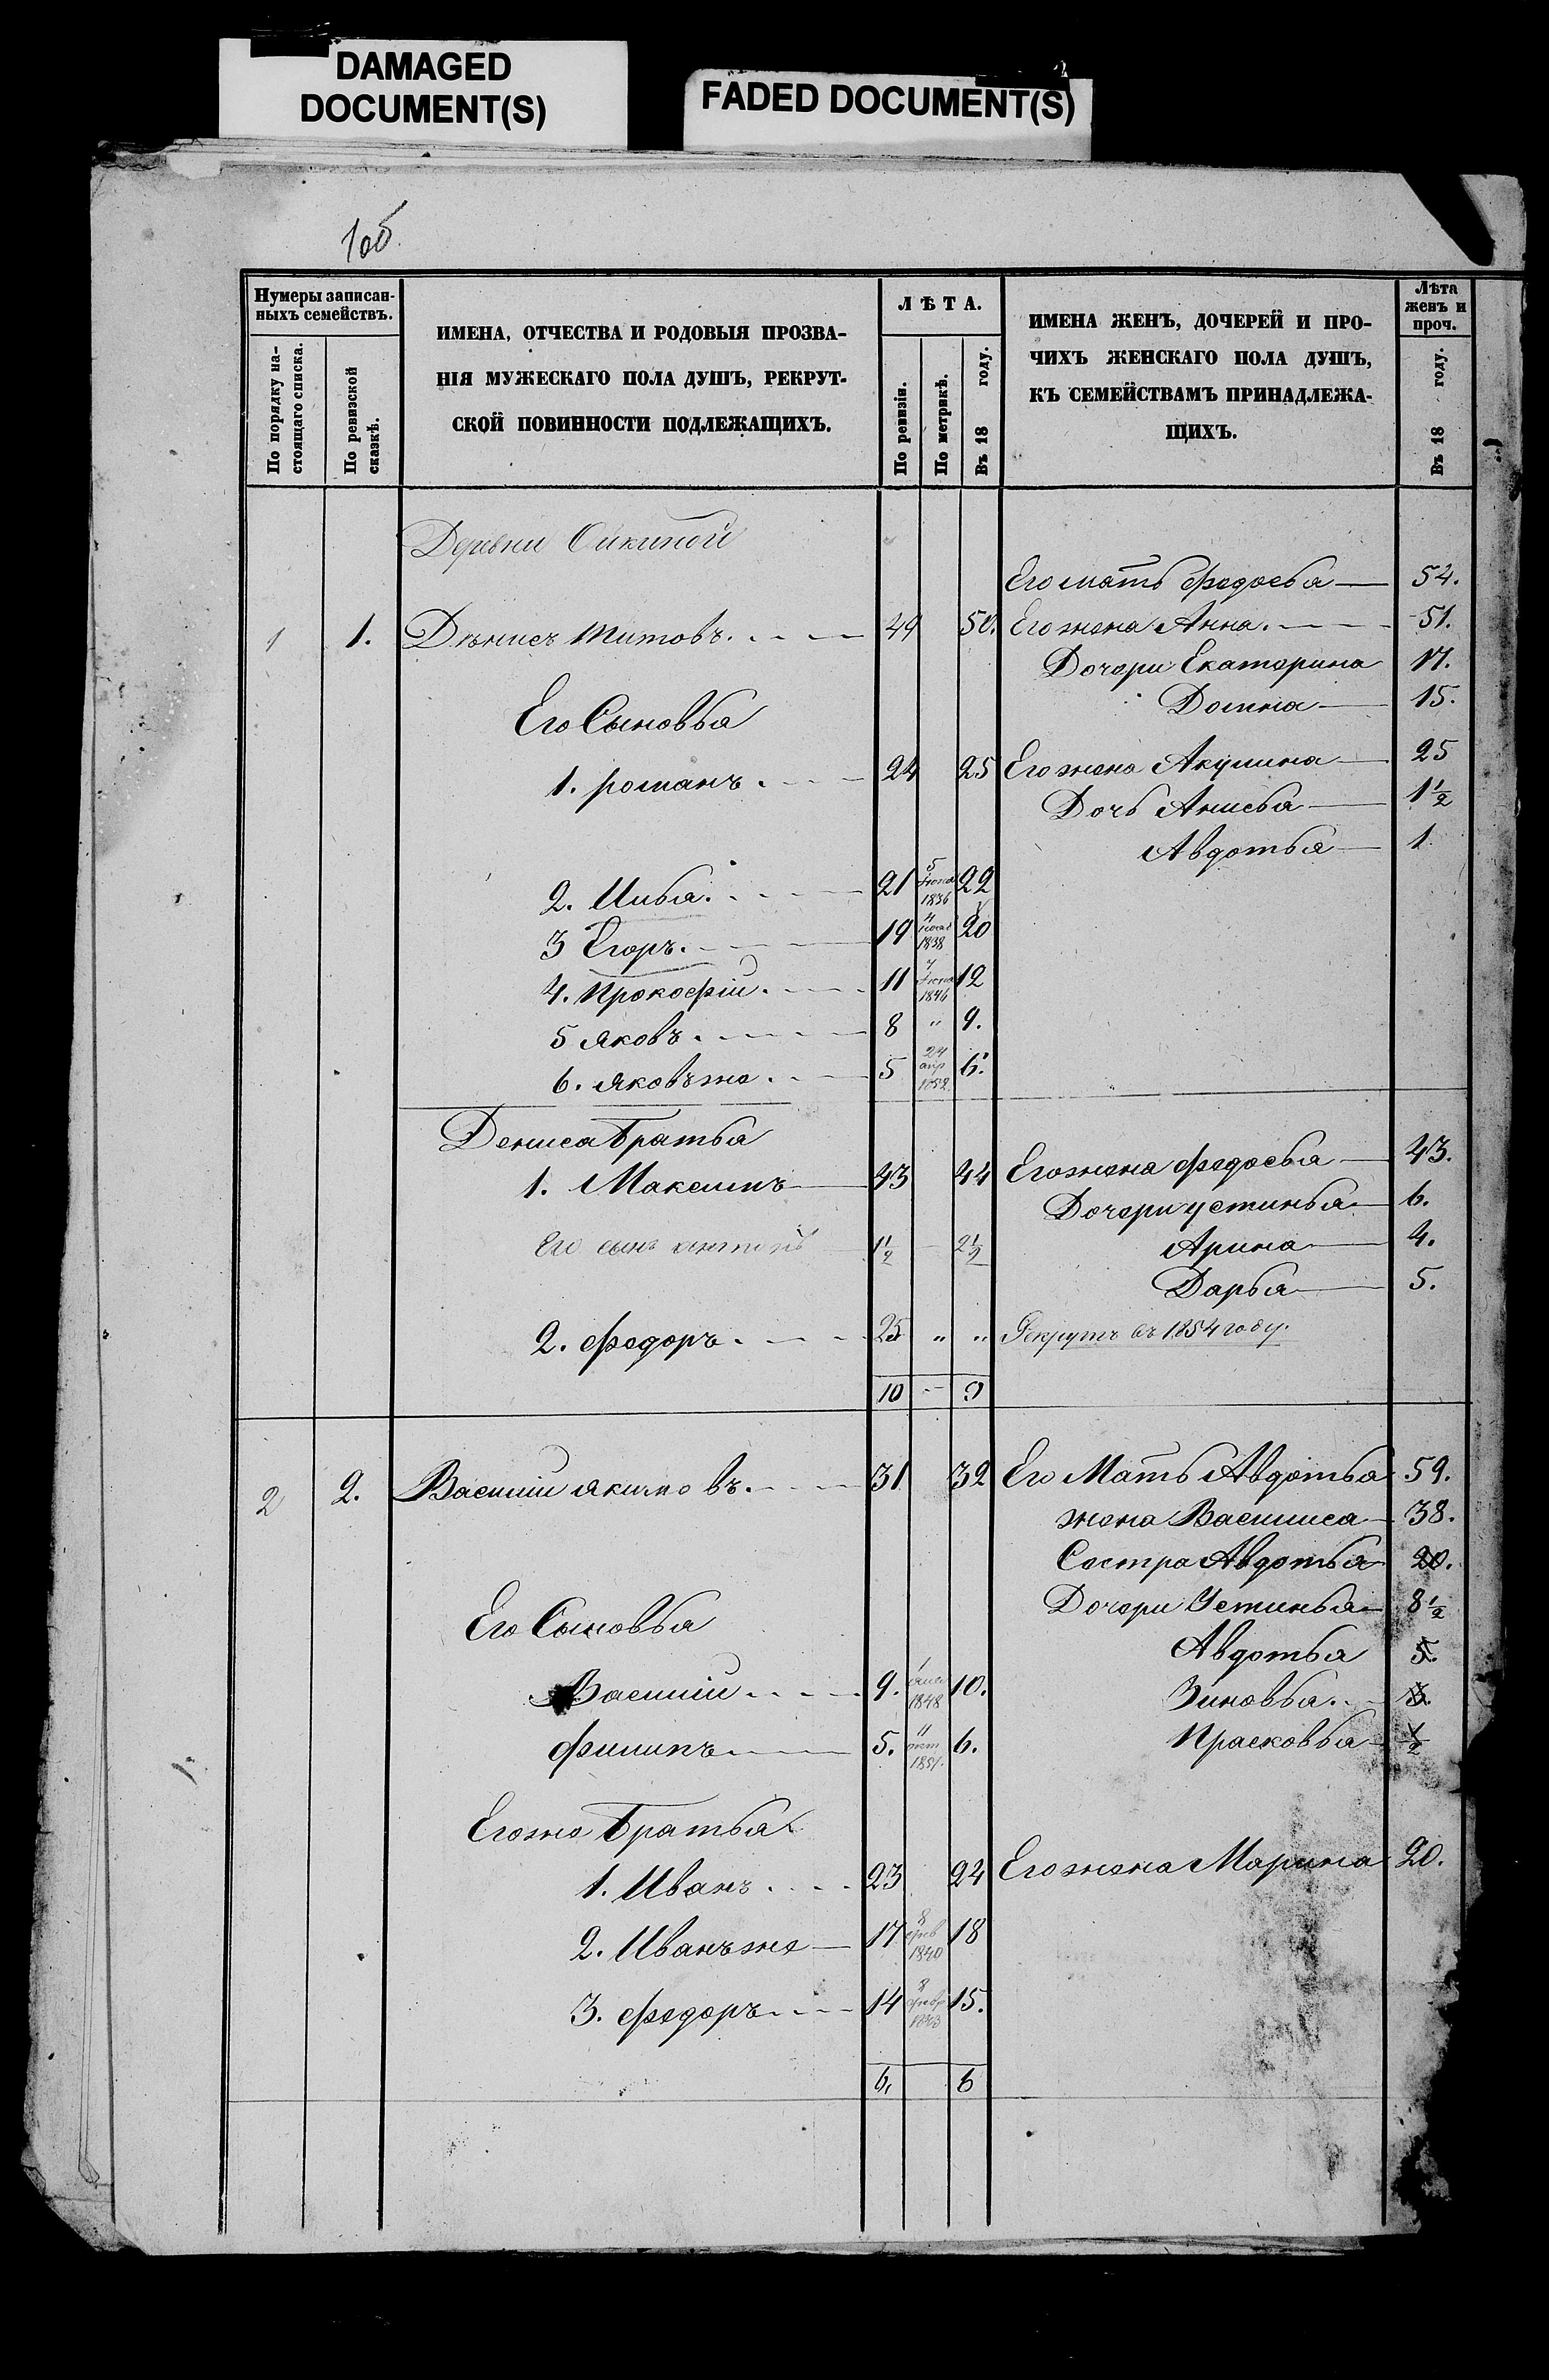 DAMAGED
DOCUMENT(S)
FADED DOCUMENT(S)
1об.
Нумеры записан-
ныхъ семействъ.
По порядку на-
стоящаго списка.
По ревизской
сказкѣ.
ИМЕНА, ОТЧЕСТВА И РОДОВЫЯ ПРОЗВА-
НІЯ МУЖЕСКАГО ПОЛА ДУШЪ, РЕКРУТ-
СКОЙ ПОВИННОСТИ ПОДЛЕЖАЩИХЪ.
ЛѢТА.
По ревизіи.
По метрикѣ.
Въ 18 году.
ИМЕНА ЖЕНЪ, ДОЧЕРЕЙ И ПРО-
ЧИХЪ ЖЕНСКАГО ПОЛА ДУШЪ,
КЪ СЕМЕЙСТВАМЪ ПРИНАДЛЕЖА-
ЩИХЪ.
Лѣта
женъ и
проч.
Въ 18 году.
Деревни
Его мать Федосья 54.
1 1. Дѣнисъ Титовъ. 49 50. Его жена Анна. 51.
Дочери Екатерина 17.
Домна 15.
Его Сыновья
1. романъ. 24 25 Его жена Акулина 25
Дочь Анисья 1 1/2
Авдотья 1
2. Илья. 21 5 1836 22
3 Егоръ. 19 4 1838 20
4. Прокофій. 11 7 1846 12
5 яковъ. 8 " 9.
6. яковъ же. 5 24 апр 1852 6.
Дениса Братья
1. Максимъ 43 44 Его жена Федосья 43.
Дочери устинья 6.
Его сынъ антонъ 1 1/2 2 1/2 Арина 4.
Дарья 5.
2. Федоръ. 25 " " Рекрутъ въ 1854 году.
10 - 9
2 2. Василій якимовъ. 31 32 Его Мать Авдотья 59.
жена Василиса 38.
Сестра Авдотья 20.
Его Сыновья Дочери Устинья 8 1/2
Авдотья 5.
Василій 9. 1 1848 10. Зиновья. 3.
Филипъ 5. 11 окт 1851. 6. Прасковья 1/2
Его же Братья
1. Иванъ 23 24 Его жена Марина 20.
2. Иванъ же 17 8 1840 18
3. Федоръ 14 8 февр 1843 15.
6. 6